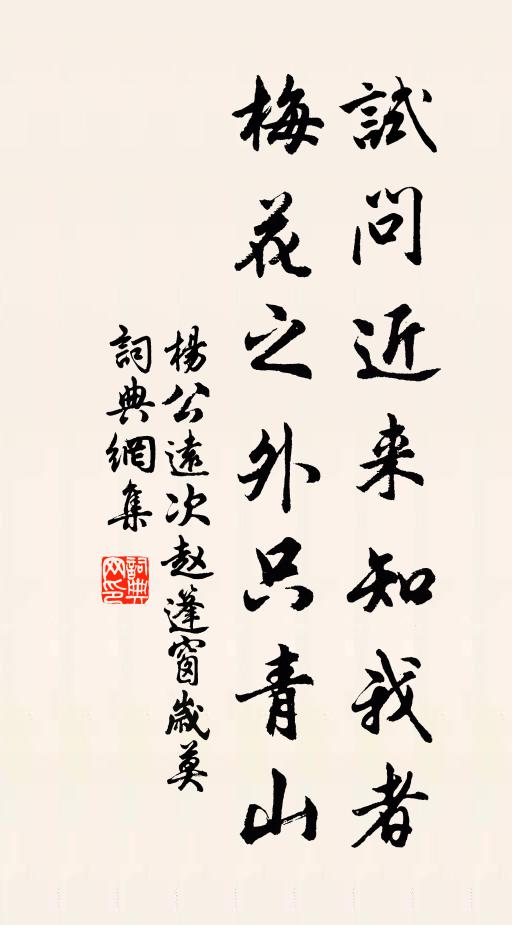 試問近来知我者
梅花之外只青山
楊公遠次赵蓬窗歲莫
詞典網集
詞典网印